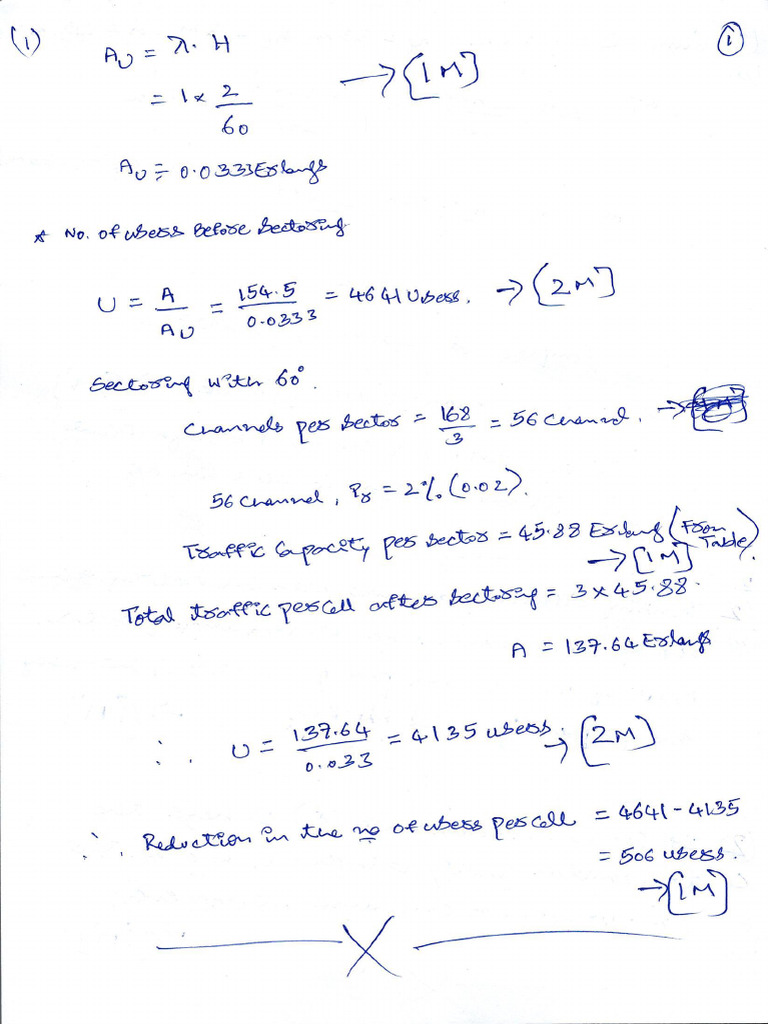 (1)
①
A_U = λ. H
= 1 x 2/60 → [1M]
A_U = 0.0333 Erlangs
* No. of users before sectoring
U = A/A_U = 154.5/0.0333 = 4641 Users. → [2M]
Sectoring with 60°.
Channels per sector = 168/3 = 56 channel. →
56 channel, Pr = 2% (0.02).
Traffic Capacity per sector = 45.88 Erlang (From Table).
→ [1M]
Total traffic per cell after sectoring = 3 x 45.88.
A = 137.64 Erlangs
∴ U = 137.64/0.033 = 4135 users. → [2M]
∴ Reduction in the no of users per cell = 4641 - 4135
= 506 users.
→ [1M]